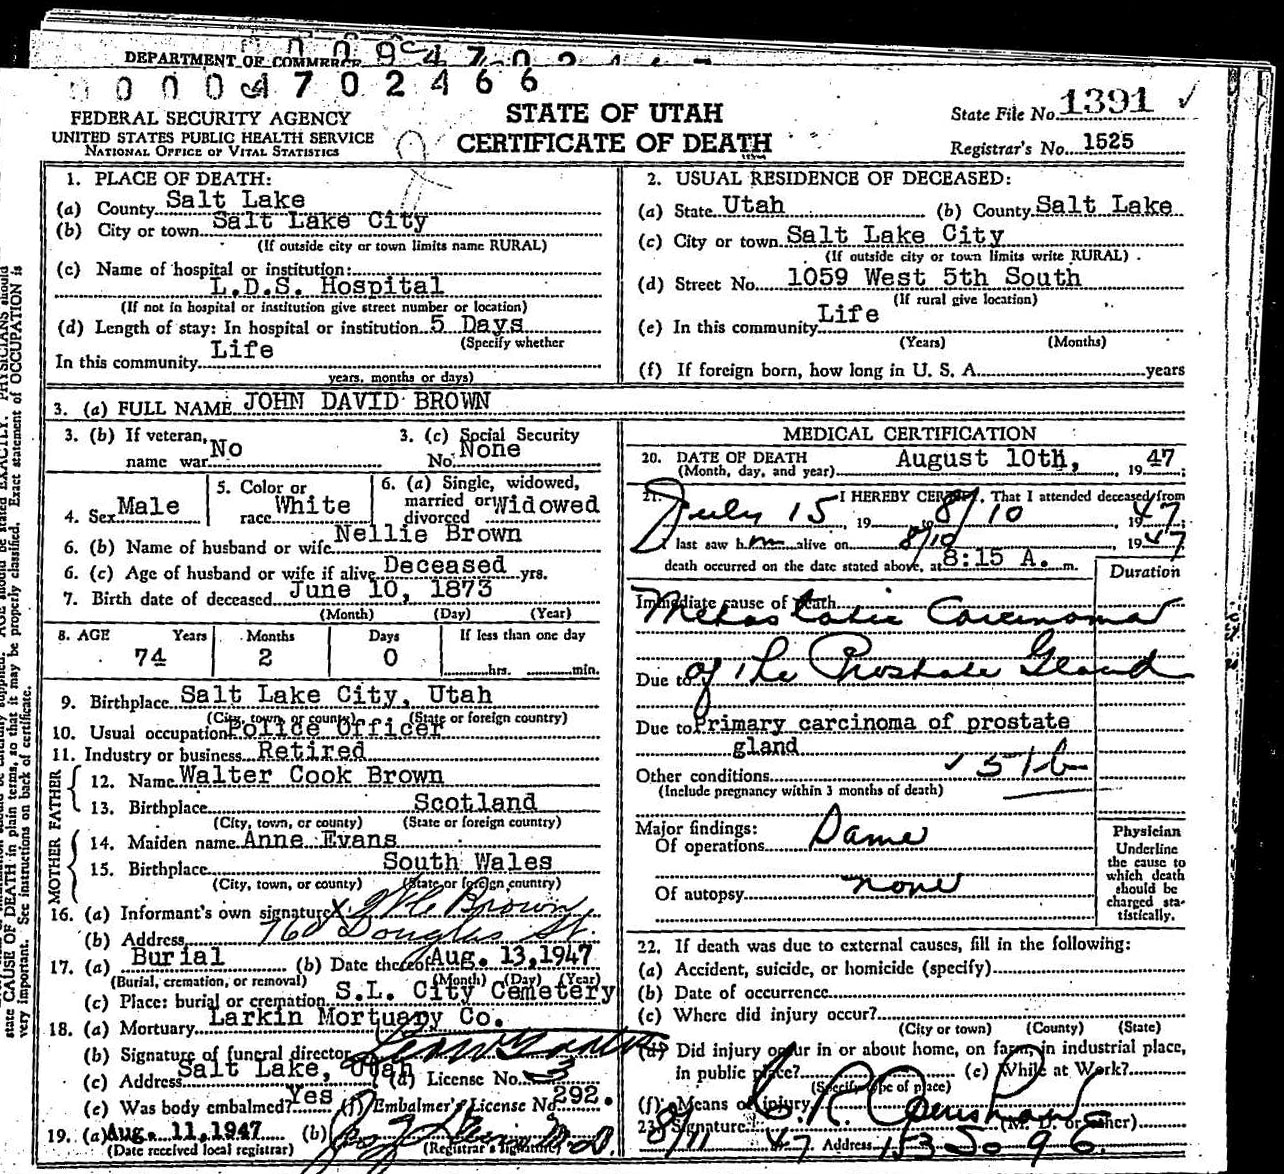 DEPARTMENT OF COMMERCE
0 0 0 0 4 7 0 2 4 6 6
FEDERAL SECURITY AGENCY
UNITED STATES PUBLIC HEALTH SERVICE
NATIONAL OFFICE OF VITAL STATISTICS
STATE OF UTAH
CERTIFICATE OF DEATH
State File No. 1391 ✓
Registrar's No. 1525
1. PLACE OF DEATH:
(a) County Salt Lake
(b) City or town Salt Lake City
(If outside city or town limits name RURAL)
(c) Name of hospital or institution:
L.D.S. Hospital
(If not in hospital or institution give street number or location)
(d) Length of stay: In hospital or institution 5 Days
(Specify whether
In this community Life
years, months or days)
2. USUAL RESIDENCE OF DECEASED:
(a) State Utah (b) County Salt Lake
(c) City or town Salt Lake City
(If outside city or town limits write RURAL)
(d) Street No. 1059 West 5th South
(If rural give location)
(e) In this community Life
(Years) (Months)
(f) If foreign born, how long in U. S. A. years
3. (a) FULL NAME JOHN DAVID BROWN
3. (b) If veteran, name war No
3. (c) Social Security No. None
4. Sex Male
5. Color or race White
6. (a) Single, widowed, married or divorced Widowed
6. (b) Name of husband or wife Nellie Brown
6. (c) Age of husband or wife if alive Deceased yrs.
7. Birth date of deceased June 10, 1873
(Month) (Day) (Year)
8. AGE Years Months Days If less than one day
74 2 0 hrs. min.
9. Birthplace Salt Lake City, Utah
(City, town or county) (State or foreign country)
10. Usual occupation Police Officer
11. Industry or business Retired
FATHER
12. Name Walter Cook Brown
13. Birthplace Scotland
(City, town, or county) (State or foreign country)
MOTHER
14. Maiden name Anne Evans
15. Birthplace South Wales
(City, town, or county) (State or foreign country)
16. (a) Informant's own signature X Brown
(b) Address 760 Douglas St.
17. (a) Burial (b) Date thereof Aug. 13, 1947
(Burial, cremation, or removal) (Month) (Day) (Year)
(c) Place: burial or cremation S.L. City Cemetery
18. (a) Mortuary Larkin Mortuary Co.
(b) Signature of funeral director
(c) Address Salt Lake, Utah (d) License No. 3
(e) Was body embalmed? Yes (f) Embalmer's License No. 292.
19. (a) Aug. 11, 1947 (b)
(Date received local registrar) (Registrar's signature)
MEDICAL CERTIFICATION
20. DATE OF DEATH August 10th, 1947;
(Month, day, and year)
21. I HEREBY CERTIFY, That I attended deceased from
July 15, 19 to 8/10, 1947;
I last saw him alive on 8/10 1947
death occurred on the date stated above, at 8:15 A. m.
Duration
Immediate cause of death
Metastatic Carcinoma
Due to of the Prostate Gland
Due to Primary carcinoma of prostate
gland
Other conditions ✓ 51b
(Include pregnancy within 3 months of death)
Major findings:
Of operations Same
Of autopsy none
Physician
Underline
the cause to
which death
should be
charged sta-
tistically.
22. If death was due to external causes, fill in the following:
(a) Accident, suicide, or homicide (specify)
(b) Date of occurrence
(c) Where did injury occur?
(City or town) (County) (State)
(d) Did injury occur in or about home, on farm, in industrial place,
in public place? (e) While at Work?
(Specify type of place)
(f) Means of injury
23. Signature (M. D. or other)
8/11 47 Address 1350 9 E
state CAUSE OF DEATH in plain terms, so that it may be properly classified. Exact statement of OCCUPATION is
very important. See instructions on back of certificate.